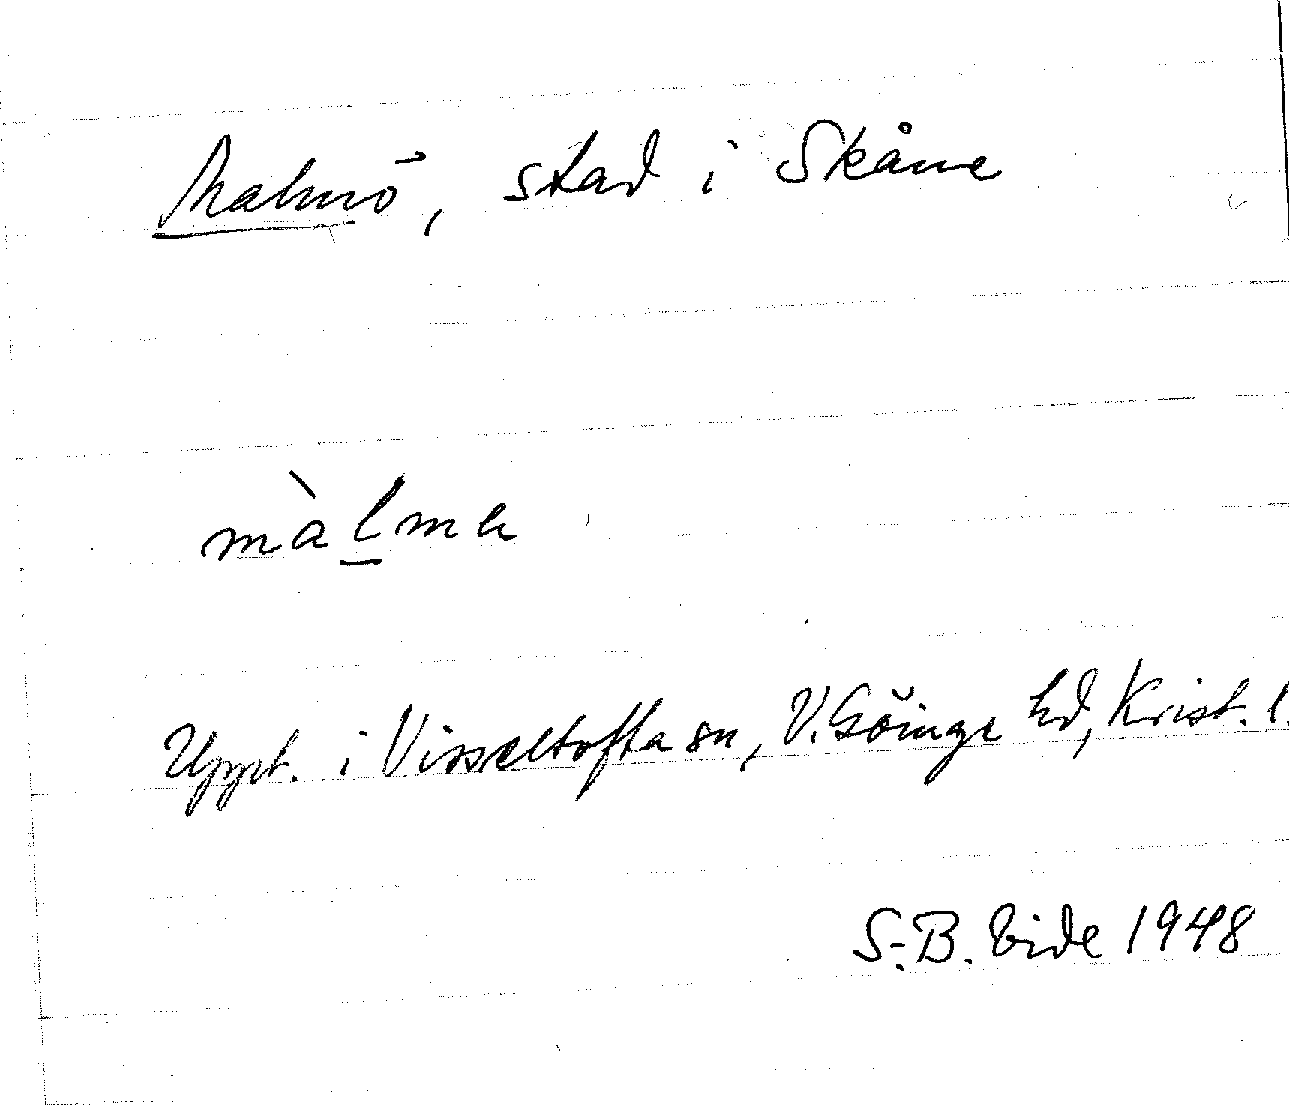 Malmö, stad i Skåne
màlma
Uppt. i Visseltofta sn, V. Göinge hd, Krist. l.
S.-B. Vide 1948